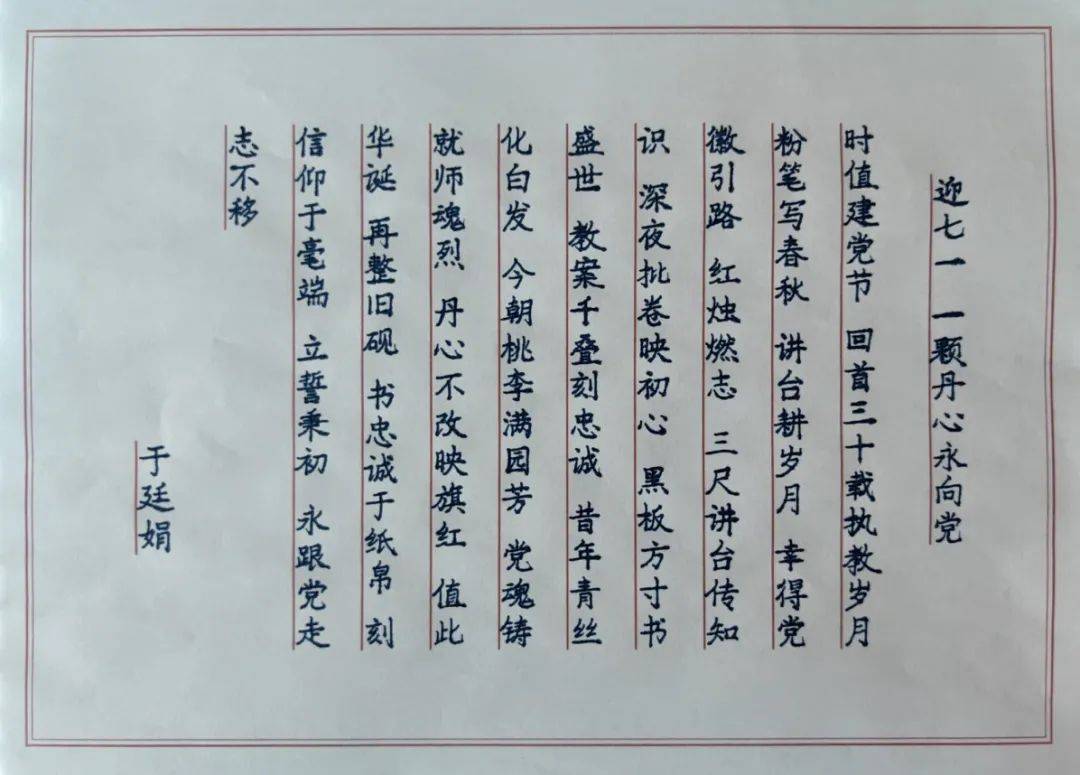 迎七一 一颗丹心永向党
时值建党节 回首三十载执教岁月
粉笔写春秋 讲台耕岁月 幸得党
徽引路 红烛燃志 三尺讲台传知
识 深夜批卷映初心 黑板方寸书
盛世 教案千叠刻忠诚 昔年青丝
化白发 今朝桃李满园芳 党魂铸
就师魂烈 丹心不改映旗红 值此
华诞 再整旧砚 书忠诚于纸帛 刻
信仰于毫端 立誓秉初 永跟党走
志不移
于廷娟